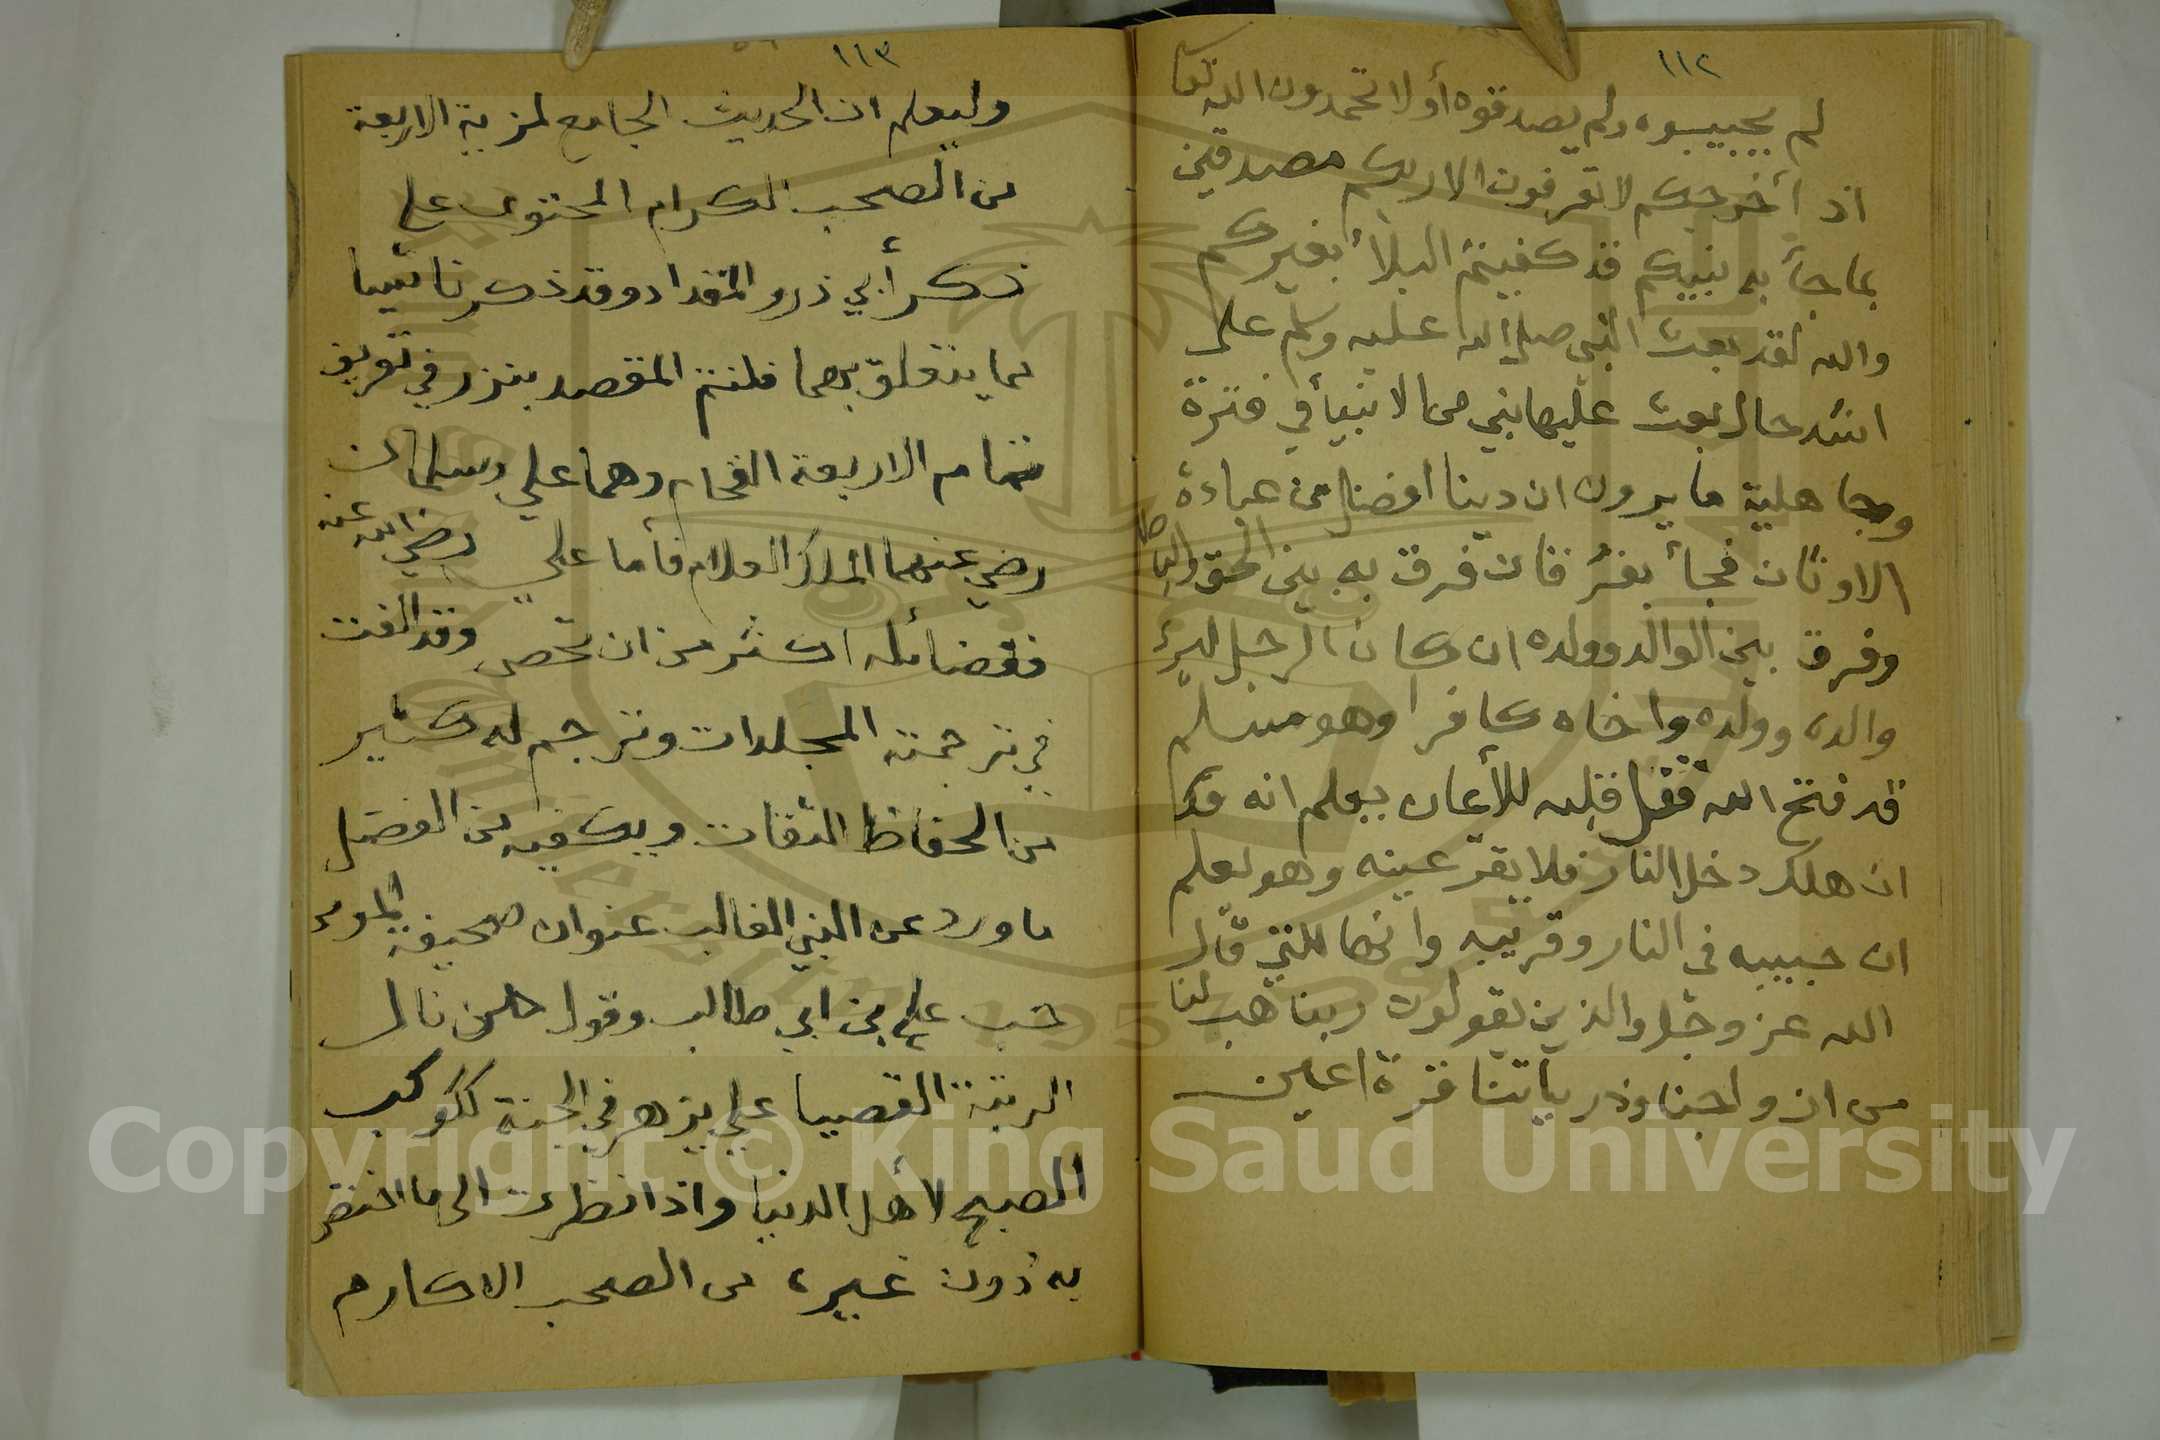 ١١٢
لم يجيبوه ولم يصدقوه أولا تحمدون الله تعا
اذ أخرجكم لا تعرفون الا ربكم مصدقين
بما جأ به نبيكم قد كفيتم البلأ بغيركم
والله لقد بعث النبي صلى الله عليه وسلم على
اشد حال بعث عليها نبي من الانبيأ في فترة
وجاهلية ما يرون ان دينا افضل من عبادة
الاوثان فجأ بفرقان فرق به بين الحق والباطل
وفرق بين الوالد وولده ان كان الرجل ليرى
والده وولده واخاه كافرا وهو مسلم
قد فتح الله قفل قلبه للأيمان يعلم انه قد
ان هلك دخل النار فلا يقر عينه وهو يعلم
ان حبيبه في النار وقريبه وانها للتي قال
الله عز وجل والذين يقولون ربنا هب لنا
من ازواجنا وذرياتنا قرة اعين
١١٣
وليعلم ان الحديث الجامع لمزية الاربعة
من الصحب الكرام المحتوى على
ذكر أبي ذر والمقداد وقد ذكرنا شيا
مما يتعلق بهما فلنتم المقصد بنزر في تعريف
تمام الاربعة الفخام وهما علي وسلمان
رضي عنهما الملك العلام فأما علي رضي الله عنه
ففضائله اكثر من ان تحصى وقد الفت
في ترجمته المجلدات وترجم له كثير
من الحفاظ الثقات ويكفيه من الفضل
ما ورد عن النبي الغالب عنوان صحيفة المومن
حب علي بن ابي طالب وقول من نال
الرتبة القصيا علي يزهر في الجنة ككوكب
الصبح لأهل الدنيا واذا نظرت الى ما اختص
به دون غيره من الصحب الاكارم
Copyright © King Saud University